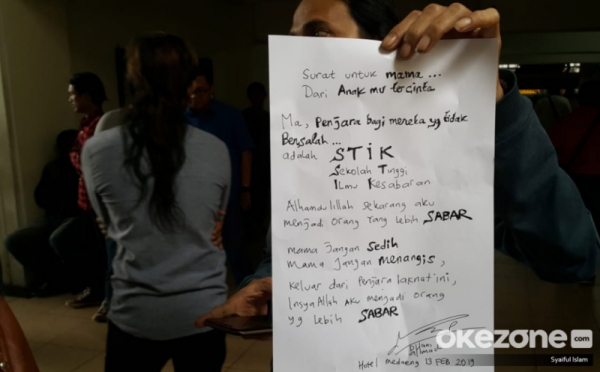 Surat untuk mama ...
Dari Anak mu tercinta
Ma, Penjara bagi mereka yg tidak
Bersalah ...
adalah STIK
Sekolah Tinggi
Ilmu Kesabaran
Alhamdulillah sekarang aku
menjadi orang yang lebih SABAR
mama jangan sedih
mama jangan menangis,
keluar dari Penjara laknat ini,
InsyaAllah aku menjadi orang
yg lebih SABAR
Dhani
Ahmad
Hotel medaeng 13 FEB 2019
okezone.com
Syaiful Islam